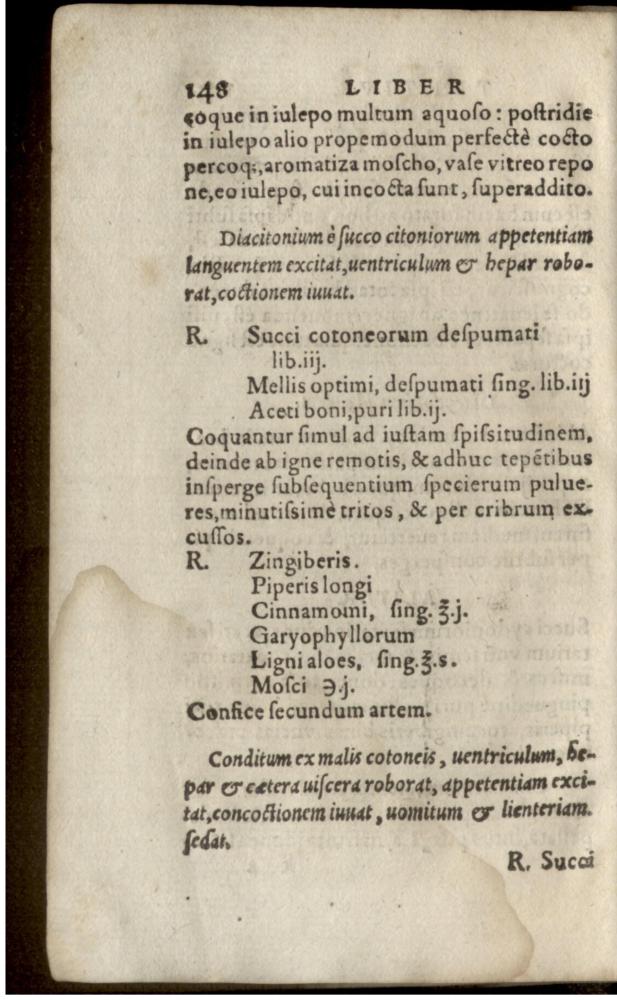 148 LIBER
coque in iulepo multum aquoſo: poſtridie
in iulepo alio propemodum perfectè cocto
percoq;, aromatiza moſcho, vaſe vitreo repo
ne, eo iulepo, cui incocta ſunt, ſuperaddito.
Diacitonium è ſucco citoniorum appetentiam
languentem excitat, uentriculum & hepar robo-
rat, coctionem iuuat.
R. Succi cotoneorum deſpumati
lib.iij.
Mellis optimi, deſpumati ſing. lib.iij
Aceti boni, puri lib.ij.
Coquantur ſimul ad iuſtam ſpiſsitudinem,
deinde ab igne remotis, & adhuc tepētibus
inſperge ſubſequentium ſpecierum pulue-
res, minutiſsimè tritos, & per cribrum ex-
cuſſos.
R. Zingiberis.
Piperis longi
Cinnamomi, ſing. ℥.j.
Garyophyllorum
Ligni aloes, ſing. ℥.s.
Moſci ℈.j.
Confice ſecundum artem.
Conditum ex malis cotoneis, uentriculum, he-
par & cætera uiſcera roborat, appetentiam exci-
tat, concoctionem iuuat, uomitum & lienteriam.
ſedat.
R. Succi